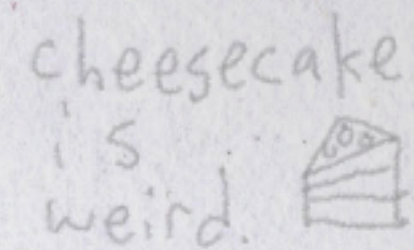 cheesecake
is
weird.